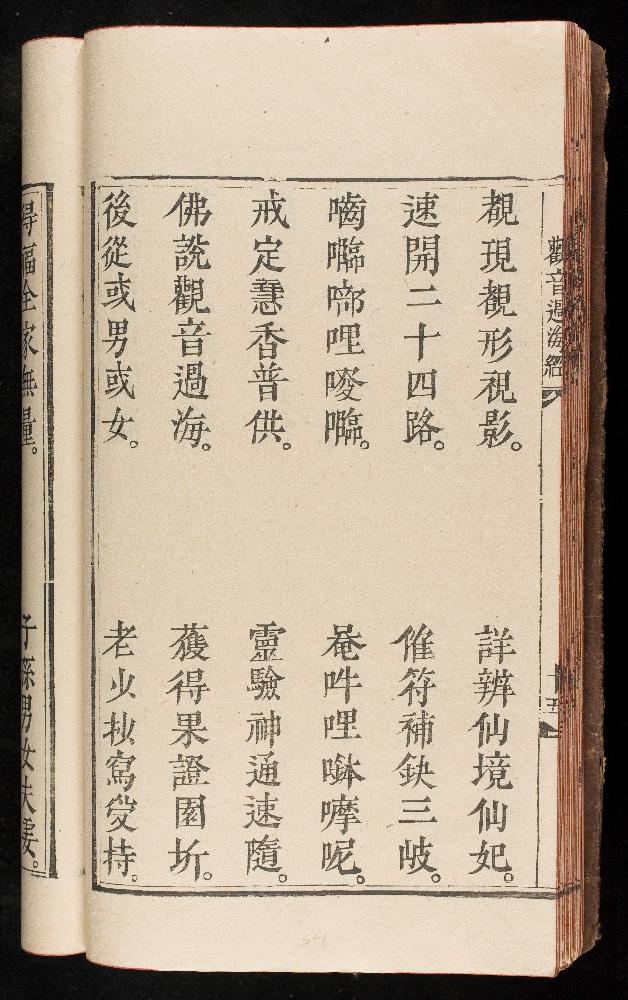 觀音過海經
十五
覩現覩形視影。 詳辨仙境仙妃。
速開二十四路。 催符補鈌三岐。
嚙㘓啷哩㗼㘓。 菴吽哩𠶹嚤呢。
戒定慧香普供。 靈驗神通速隨。
佛說觀音過海。 獲得果證園圻。
後從或男或女。 老少抄寫受持。
得福全家無量。 子孫男女夫妻。